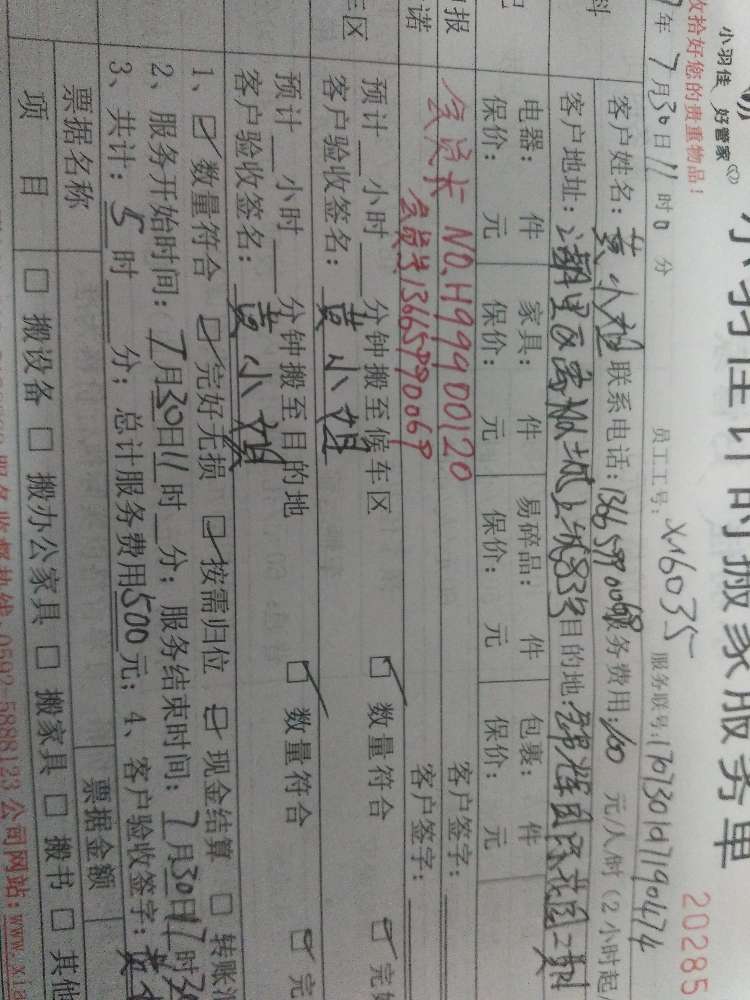 小羽佳 好管家
收拾好您的贵重物品！
小羽佳计时搬家服务单
20285
年7月30日11时0分
员工工号：X16035
服务联号：
客户姓名：黄小姐 联系电话：13665990069 服务费用：100元/人/时（2小时起
客户地址：湖里区 目的地：
电器： 件 家具： 件 易碎品： 件 包裹： 件
保价： 元 保价： 元 保价： 元 保价： 元
会员卡 NO.H99900120
客户签字：
会员号13665990069
客户签字：
预计 小时 分钟搬至候车区
数量符合
客户验收签名：黄小姐
预计 小时 分钟搬至目的地
数量符合
客户验收签名：黄小姐
1、数量符合 完好无损 按需归位 现金结算
2、服务开始时间：7月30日11时 分；服务结束时间：7月30日17时30
3、共计：5时 分；总计服务费用500元；4、客户验收签字：黄
票据名称
票据金额
项 目
搬设备 搬办公家具 搬家具 搬书 其他
服务监督热线：0592-5888123 公司网站：www.xia